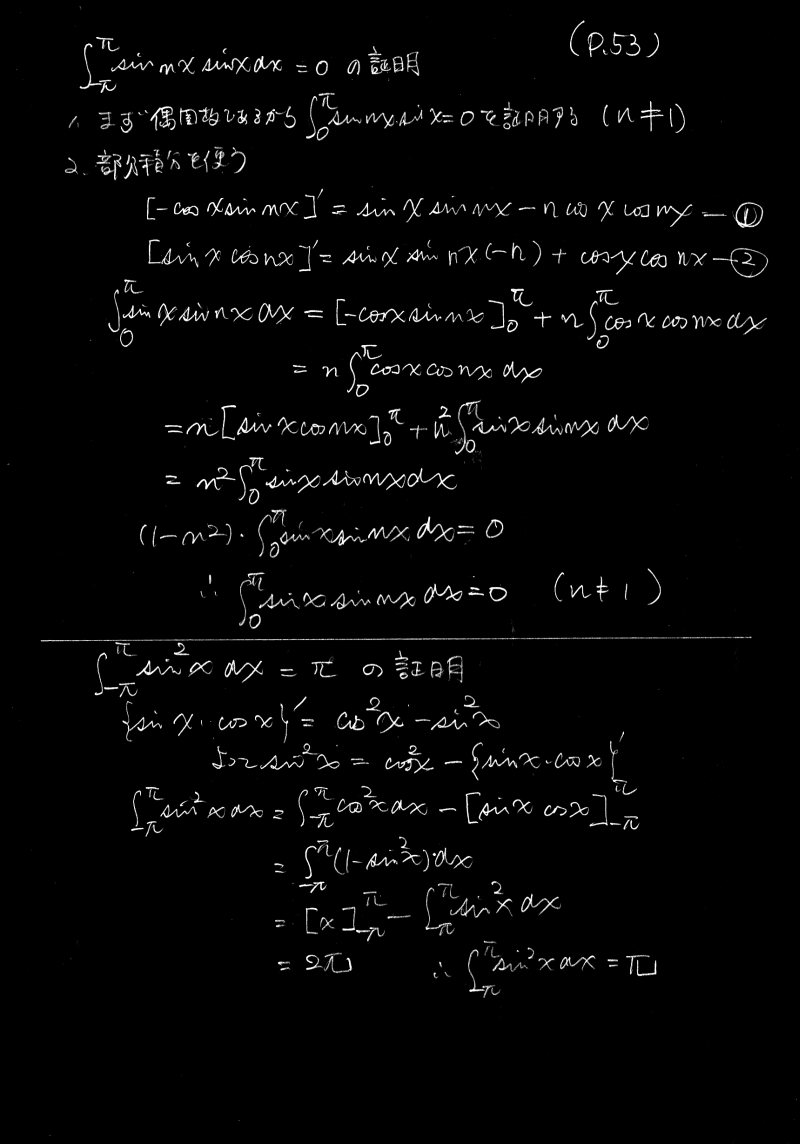 (P.53)
∫_{-π}^{π} sin nx sinx dx = 0 の証明
1. まず偶函数であるから ∫_0^π sin nx sin x = 0 を証明する (n ≠ 1)
2. 部分積分を使う
[-cos x sin nx]' = sin x sin nx - n cos x cos nx — ①
[sin x cos nx]' = sin x sin nx (-n) + cos x cos nx — ②
∫_0^π sin x sin nx dx = [-cos x sin nx]_0^π + n ∫_0^π cos x cos nx dx
= n ∫_0^π cos x cos nx dx
= n [sin x cos nx]_0^π + n² ∫_0^π sin x sin nx dx
= n² ∫_0^π sin x sin nx dx
(1-n²)・∫_0^π sin x sin nx dx = 0
∴ ∫_0^π sin x sin nx dx = 0 (n ≠ 1)
∫_{-π}^{π} sin² x dx = π の証明
{sin x・cos x}' = cos² x - sin² x
よって sin² x = cos² x - {sin x・cos x}'
∫_{-π}^{π} sin² x dx = ∫_{-π}^{π} cos² x dx - [sin x cos x]_{-π}^{π}
= ∫_{-π}^{π} (1-sin² x)・dx
= [x]_{-π}^{π} - ∫_{-π}^{π} sin² x dx
= 2π ∴ ∫_{-π}^{π} sin² x dx = π